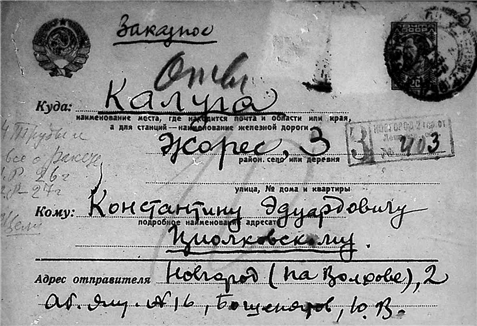 Заказное
Отв
Куда: Калуга
наименование места, где находится почта и области или края,
а для станций—наименование железной дороги
Жорес, 3
район, село или деревня
НОВГОРОД-2
З № 403
все о
26 г
27 г
улица, № дома и квартиры
Кому: Константину Эдуардовичу
подробное наименование адресата
Циолковскому.
Адрес отправителя Новгород (на Волхове), 2
Аб. ящ. №16, Ю. В.